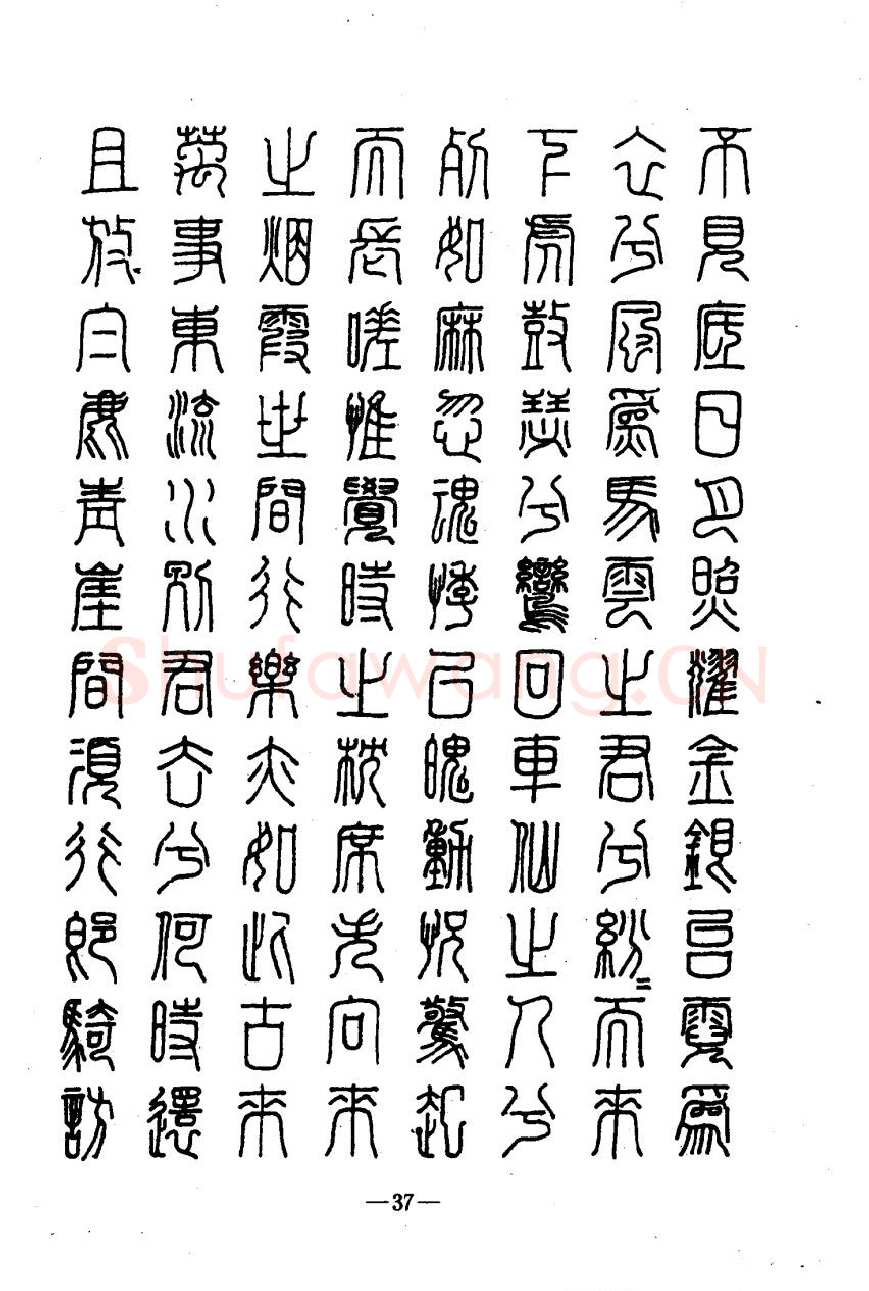 不見底日月照耀金銀台霓為
衣兮風為馬雲之君兮紛〻而來
下虎鼓瑟兮鸞回車仙之人兮
列如麻忽魂悸以魄動怳驚起
而長嗟惟覺時之枕席失向來
之烟霞世間行樂亦如此古來
萬事東流水別君去兮何時還
且放白鹿青崖間須行即騎訪
—37—
Shufawang.CN